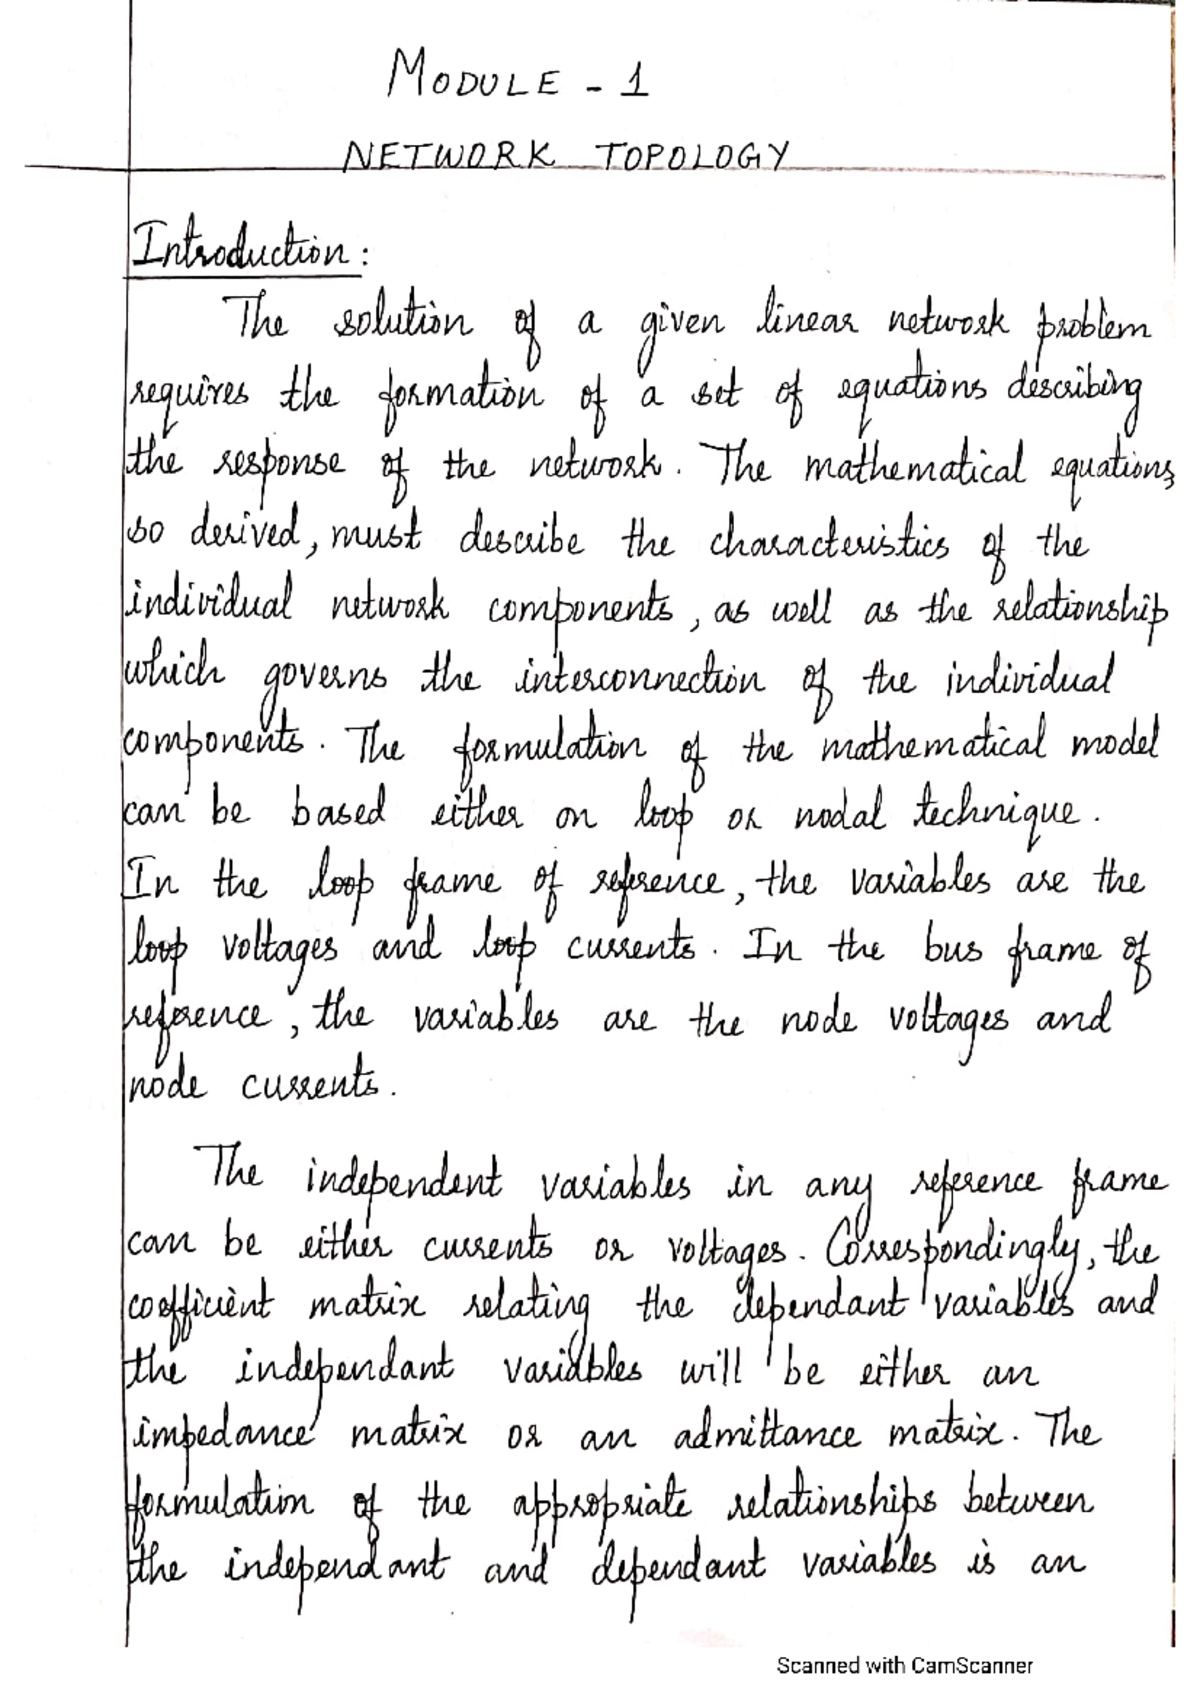 MODULE - 1
NETWORK TOPOLOGY
Introduction:
The solution of a given linear network problem
requires the formation of a set of equations describing
the response of the network. The mathematical equations
so derived, must describe the characteristics of the
individual network components, as well as the relationship
which governs the interconnection of the individual
components. The formulation of the mathematical model
can be based either on loop or nodal technique.
In the loop frame of reference, the variables are the
loop voltages and loop currents. In the bus frame of
reference, the variables are the node voltages and
node currents.
The independent variables in any reference frame
can be either currents or voltages. Correspondingly, the
coefficient matrix relating the dependant variables and
the independant variables will be either an
impedance matrix or an admittance matrix. The
formulation of the appropriate relationships between
the independant and dependant variables is an
Scanned with CamScanner